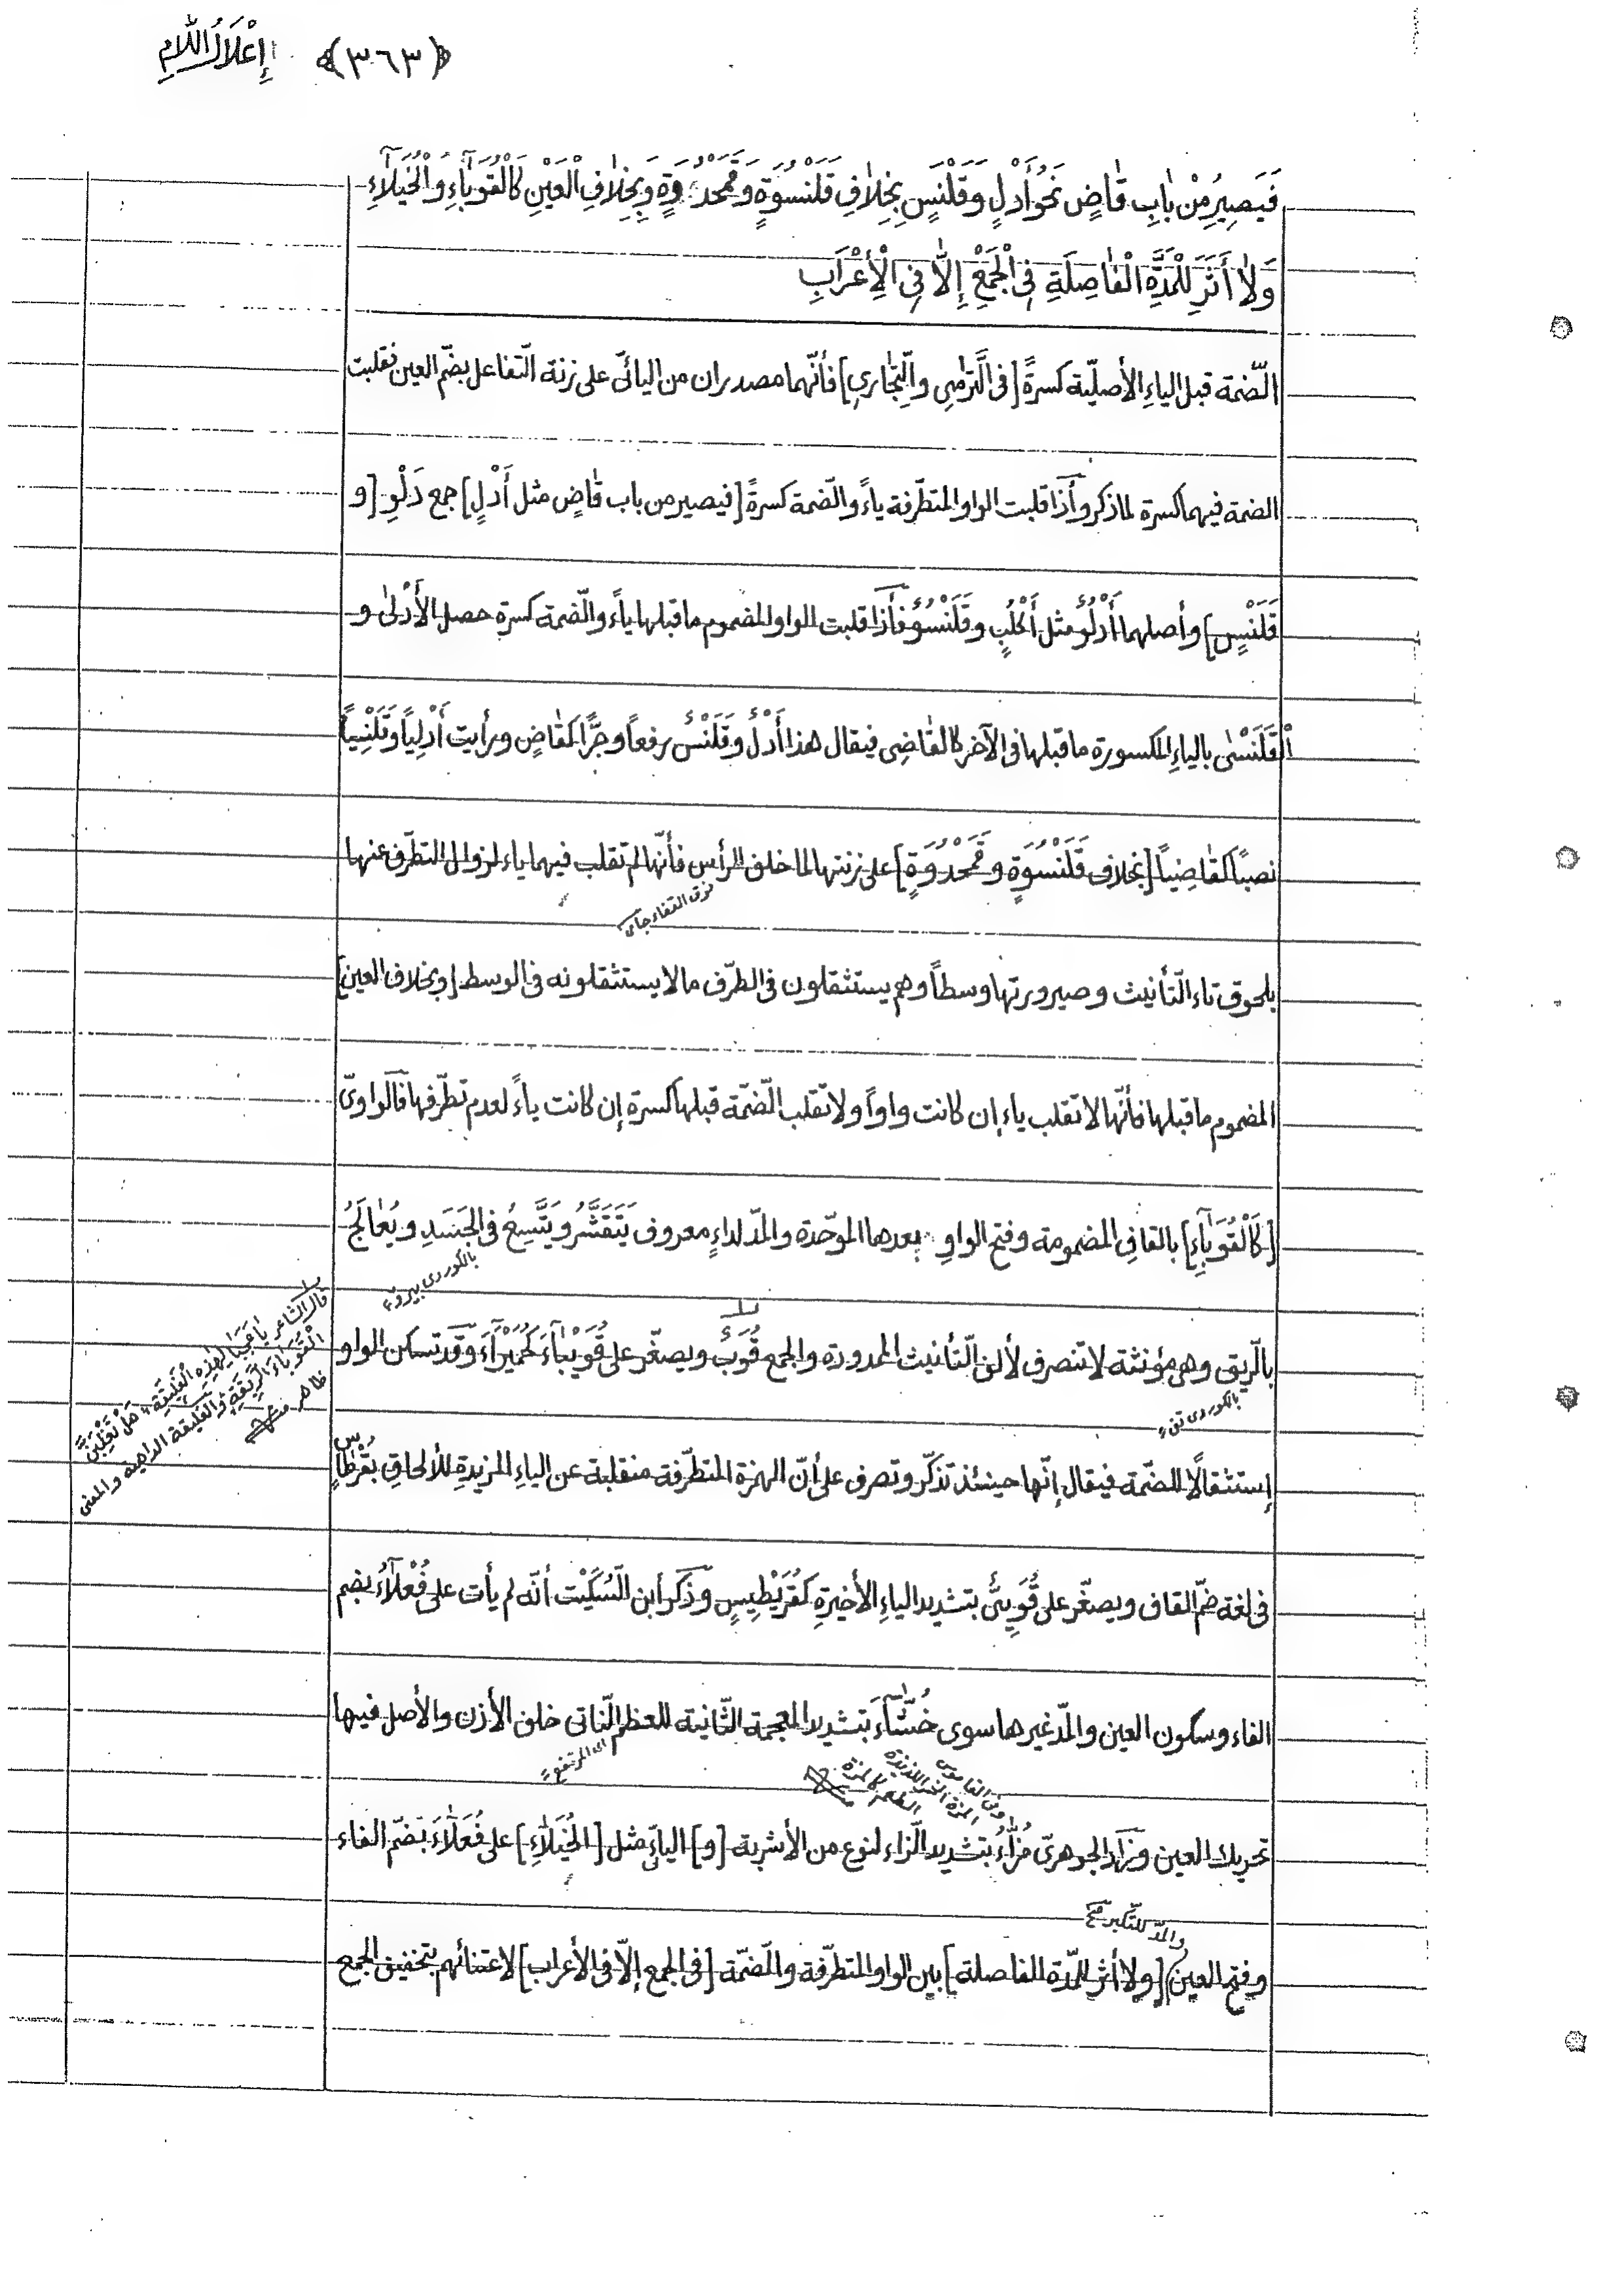 ﴿٣٦٣﴾ إِعْلَالُ اللَّامِ
فَيَصِيرُ مِنْ بَابِ قَاضٍ نَحْوُ أَدْلٍ وَقَلَنْسٍ بِخِلَافِ قَلَنْسُوَةٍ وَقَمَحْدُوَةٍ وَبِخِلَافِ الْعَيْنِ كَالْقُوَبَآءِ وَالْخُيَلَآءِ
وَلَا أَثَرَ لِلْمَدَّةِ الْفَاصِلَةِ فِي الْجَمْعِ إِلَّا فِي الْأِعْرَابِ
الضّمة قبل الياءِ الأصليّة كسرةً [في التَّرَامِي والتَّجَارِي] فأنّهما مصدران من اليائيّ على زنة التّفاعل بضمّ العين فقلبت
الضمة فيهما كسرة لما ذكر وأذا قلبت الواو المتطرّفة ياءً والضّمة كسرةً [فيصير من باب قَاضٍ مثل أَدْلٍ] جمع دَلْوٍ [و
قَلَنْسٍ] وأصلهما أَدْلُوٌ مثل أَكْلُبٍ وقَلَنْسُوٌ فأذا قلبت الواو المضموم ما قبلها ياءً والضّمة كسرة حصل الأَدْلى و
اْلقَلَنْسٰى بالياءِ المكسورة ما قبلها في الآخر كالقَاضِي فيقال هذا أَدْلٌ وقَلَنْسٌ رفعاً وجرًّا كقَاضٍ ورأيت أَدْلِياً وقَلَنْسِياً
نصبًا كقَاضِياً [بخلاف قَلَنْسُوَةٍ وقَمَحْدُوَةٍ] على زنتها لما خلف الرأس فأنّها لم تقلب فيهما ياء لزوال التطرّف عنها
فوق القفاء جاي
بلحوق تاء التّأنيث وصيرورتها وسطاً وهم يستثقلون في الطرّف ما لا يستثقلونه في الوسط [وبخلاف العين]
المضموم ما قبلها فأنّها لا تقلب ياء إن كانت واواً ولا تقلب الضّمّة قبلها كسرة إن كانت ياءً لعدم تطرّفها فالواويّ
[كَالْقُوَبَآءِ] بالقافِ المضمومة وفتح الواوِ بعدها الموحّدة والمدّ لداءٍ معروف يَتَقَشَّرُ ويَتَّسِعُ في الجَسَدِ ويُعَالَجُ
بالكوردى بيروٚ
بالرّيق وهي مؤنثة لا تنصرف لألف التّأنيث الممدودة والجمع قُوَبٌ ويصغّر على قُوَيْبَآءَ كَحُمَيْرَآءَ وقد تسكن الواو
بالكوردى تف
قال الشاعر يَا عَجَبَا لِهٰذِهِ الْفَلِيقَةِ هَلْ تَغْلِبَنَّ
الْقُوَبَاءَ الرِّيقَةِ والفليقة الداهية والمعنى
ظاهر منه
إستثقالًا للضّمّة فيقال إنّها حينئذ تذكّر وتصرف على أنّ الهمزة المتطرّفة منقلبة عن الياءِ المزيدةِ للألحاقِ بقُرْطَاسٍ
في لغة ضمّ القاف ويصغّر على قُوَيْبِيٌّ بتشديد الياءِ الأخيرةِ كقُرَيْطِيسٍ وذكر أبن السِّكِّيْت أنّه لم يأت على فُعْلَآءُ بضم
الفاء وسكون العين والمدّ غيرها سوى خُشَّآءَ بتشديد المعجمة الثّانية للعظم النّاتى خلف الأذن والأصل فيها
اى المرتفع
وفى القاموس
المزة الخمر اللذيذة
الطعم كالمزة
تحريك العين وزاد الجوهريّ مُزَّآءُ بتشديد الزّاء لنوع من الأشربة [و] اليائيّ مثل [الخُيَلَآءِ] على فُعَلَآءَ بضمّ الفاء
والمدّ للتّكبر صح
وفتح العين [ولا أثر للمدّة الفاصلة] بين الواو المتطرّفة والضّمّة [في الجمع إلّا في الأعراب] لاعتنائهم بتخفيف الجمع